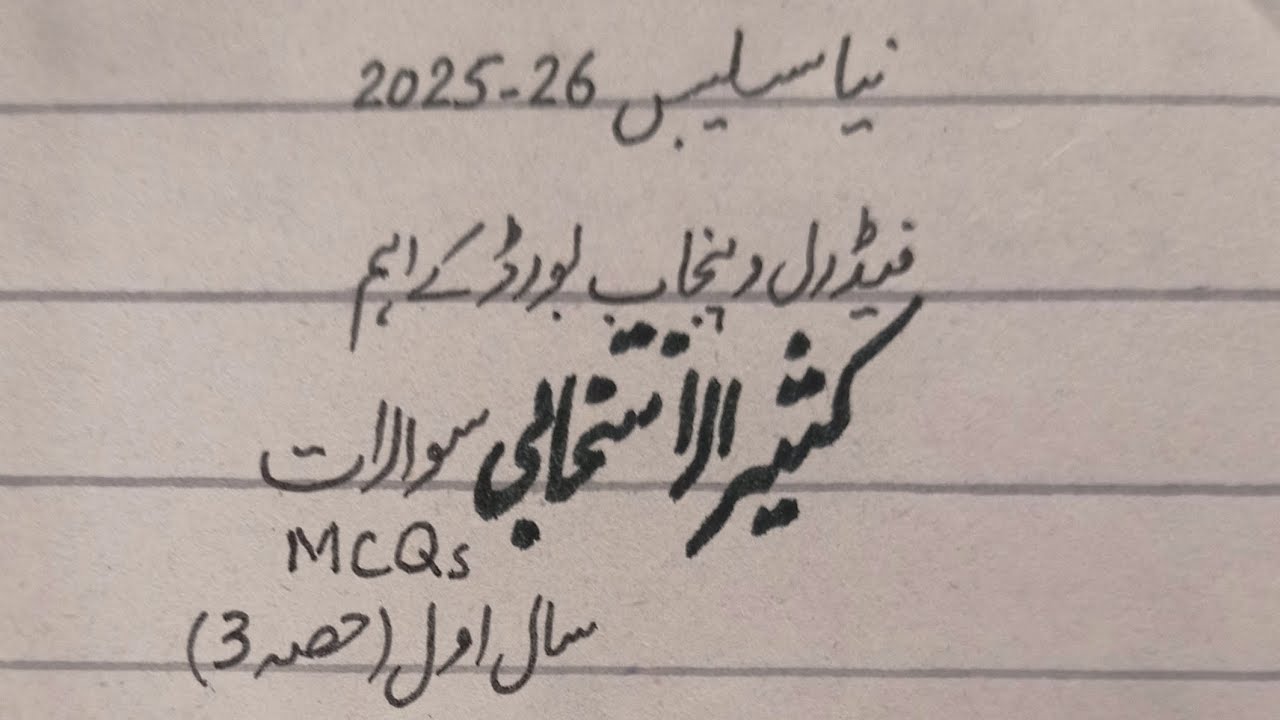 نیا سلیبس 2025-26
فیڈرل و پنجاب بورڈ کے اہم
کثیر الانتخابی سوالات
MCQs
سال اول (حصہ 3)